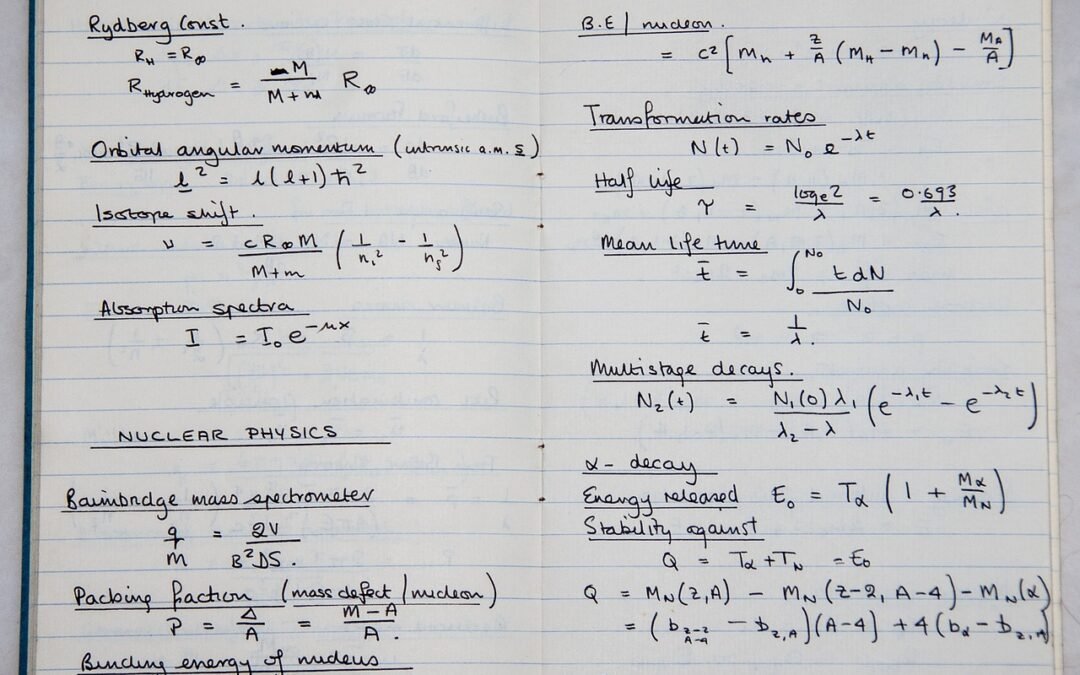 Rydberg Const.
R_H = R_∞
R_Hydrogen = M / (M+m) R_∞
Orbital angular momentum (intrinsic a.m. s)
l² = l(l+1)ħ²
Isotope shift.
ν = cR_∞M / (M+m) (1/n_i² - 1/n_f²)
Absorption spectra
I = I₀e^(-μx)
NUCLEAR PHYSICS
Bainbridge mass spectrometer
q/m = 2V / B²DS.
Packing fraction (mass defect/nucleon)
P = Δ/A = (M-A)/A.
Binding energy of nucleus
B.E/nucleon.
= c² [m_n + Z/A (M_H - m_n) - M_A/A]
Transformation rates
N(t) = N₀ e^(-λt)
Half life
τ = log_e 2 / λ = 0.693 / λ.
Mean life time
t̄ = ∫₀^N₀ t dN / N₀
t̄ = 1/λ.
Multistage decays.
N₂(t) = N₁(0)λ₁ / (λ₂-λ) (e^(-λ₁t) - e^(-λ₂t))
α- decay
Energy released E₀ = T_α (1 + M_α/M_N)
Stability against
Q = T_α + T_N = E₀
Q = M_N(Z,A) - M_N(Z-2, A-4) - M_N(α)
= (b_(Z-2, A-4) - b_(Z,A))(A-4) + 4(b_α - b_(Z,A))